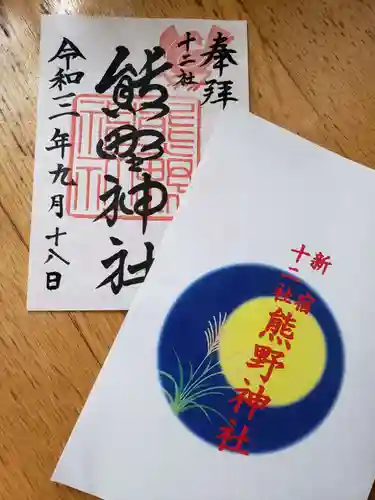 奉拝
十二社
熊野神社
令和二年九月十八日
新宿
十二社
熊野神社